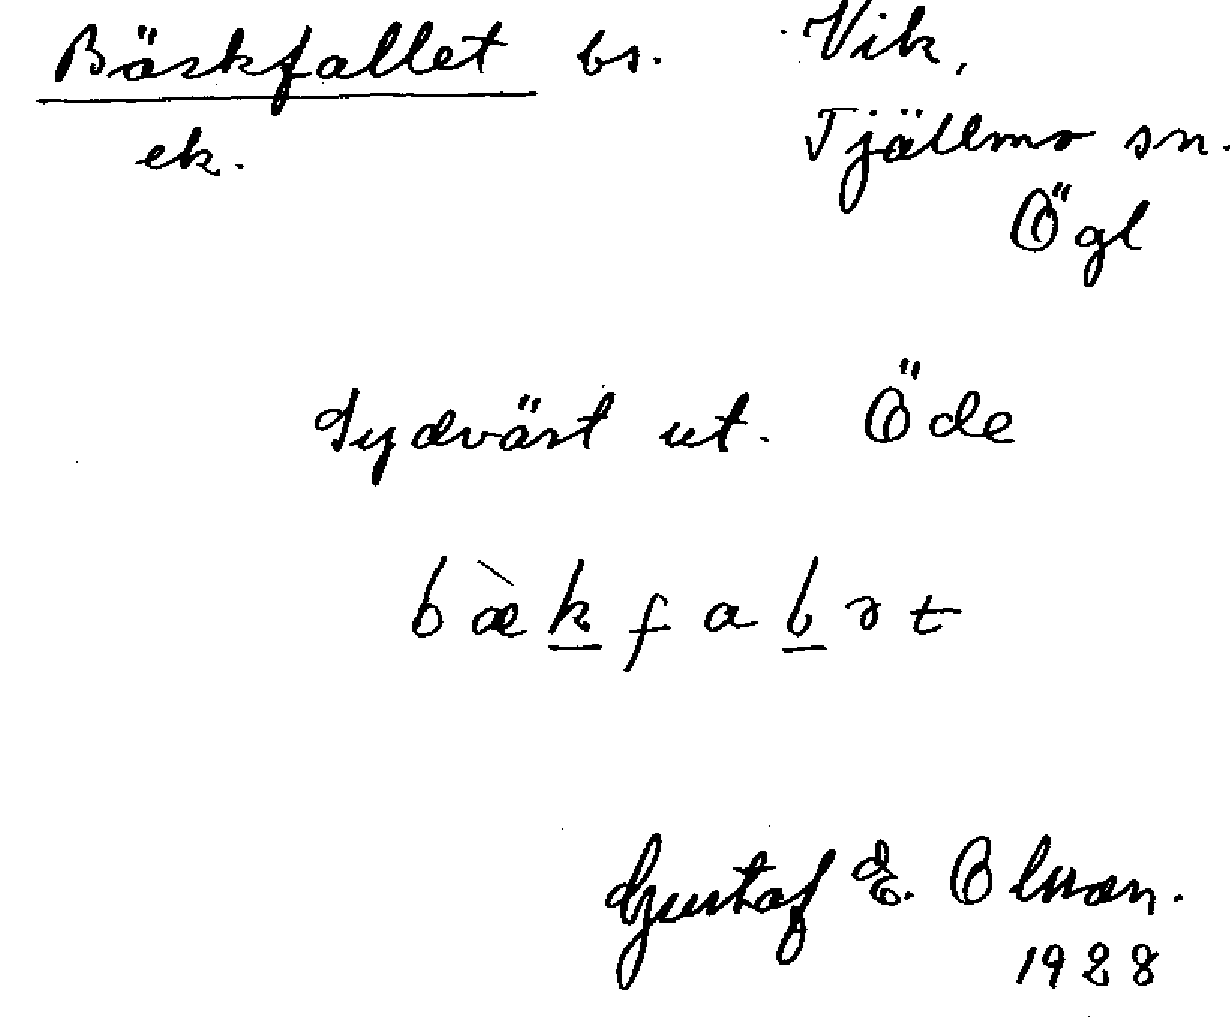 Bäckfallet bs. Vik,
ek. Tjällmo sn.
Ögl
Sydväst ut. Öde
b æ̀ k f a l ə t
Gustaf E. Olsson.
1928